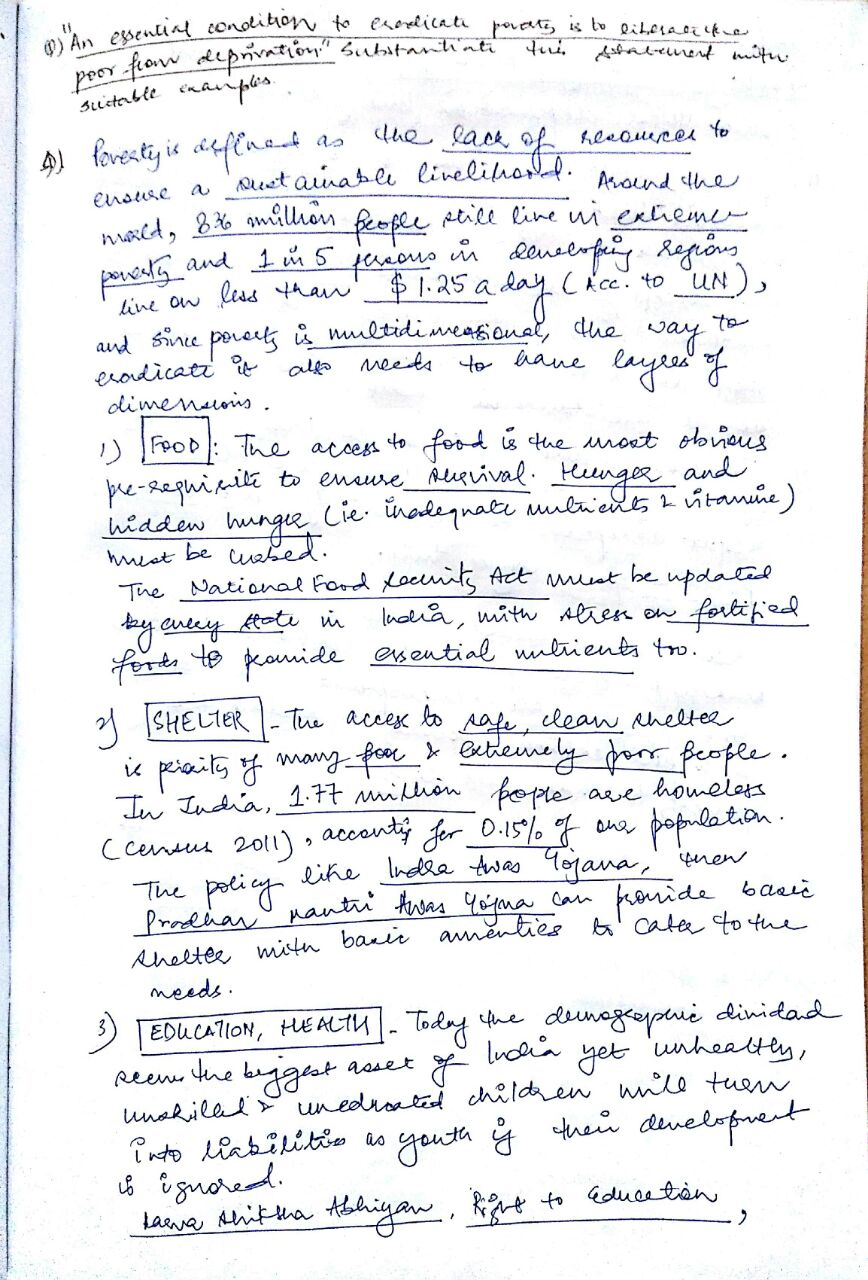 Q) "An essential condition to eradicate poverty is to liberate the
poor from deprivation." Substantiate this statement with
suitable examples.
A) Poverty is defined as the lack of resources to
ensure a sustainable livelihood. Around the
world, 836 million people still live in extreme
poverty and 1 in 5 persons in developing regions
live on less than $1.25 a day (Acc. to UN),
and since poverty is multidimensional, the way to
eradicate it also needs to have layers of
dimensions.
1) FOOD: The access to food is the most obvious
pre-requisite to ensure survival. Hunger and
hidden hunger (ie. inadequate nutrients & vitamins)
must be curbed.
The National Food Security Act must be updated
by every state in India, with stress on fortified
foods to provide essential nutrients too.
2) SHELTER - The access to safe, clean shelter
is priority of many poor & extremely poor people.
In India, 1.77 million people are homeless
(census 2011), accounting for 0.15% of our population.
The policy like Indra Awas Yojana, then
Pradhan Mantri Awas Yojna can provide basic
shelter with basic amenties to cater to the
needs.
3) EDUCATION, HEALTH - Today the demographic dividend
seems the biggest asset of India yet unhealthy,
unskilled & uneducated children will turn
into liabilities as youth if their development
is ignored.
Sarva Shiksha Abhiyan, Right to Education,